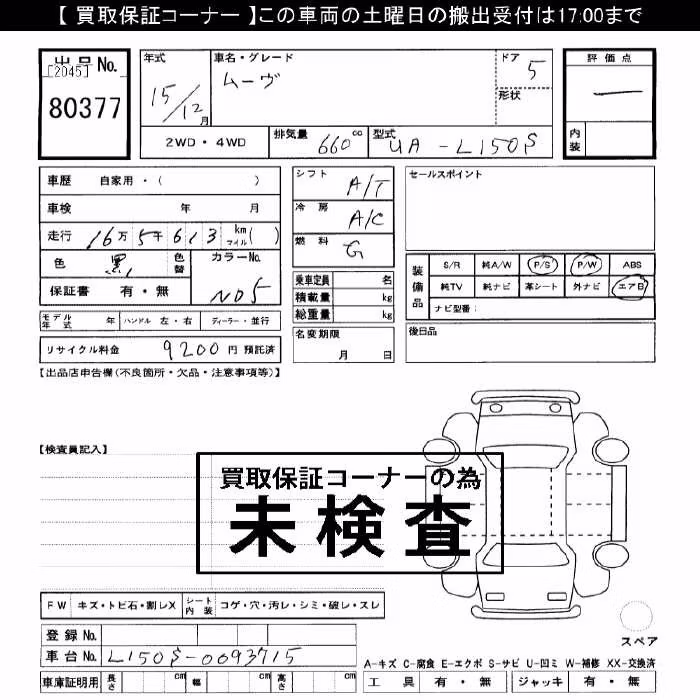 【 買取保証コーナー 】この車両の土曜日の搬出受付は17:00まで
出品No. [2045] 80377
年式 15/12月
車名・グレード ムーヴ
ドア 5
形状
評価点 ー
内装
2WD・4WD 排気量 660cc 型式 UA-L150S
車歴 自家用・( )
車検 年 月
走行 16万5千613km マイル( )
色 黒 色替 カラーNo. N05
保証書 有・無
シフト A/T
冷房 A/C
燃料 G
セールスポイント
装備品 S/R 純A/W P/S P/W ABS
純TV 純ナビ 革シート 外ナビ エアB
ナビ型番:
乗車定員 名
積載量 kg
総重量 kg
モデル年式 年 ハンドル 左・右 ディーラー・並行
名変期限 月 日
後日品
リサイクル料金 9200円 預託済
【出品店申告欄(不良箇所・欠品・注意事項等)】
【検査員記入】
買取保証コーナーの為
未検査
FW キズ・トビ石・割レX シート内装 コゲ・穴・汚レ・シミ・破レ・スレ
スペア
登録No.
車台No. L150S-0093715
A-キズ C-腐食 E-エクボ S-サビ U-凹ミ W-補修 XX-交換済
車庫証明用 長さ cm 幅 cm 高さ cm
工具 有・無 ジャッキ 有・無